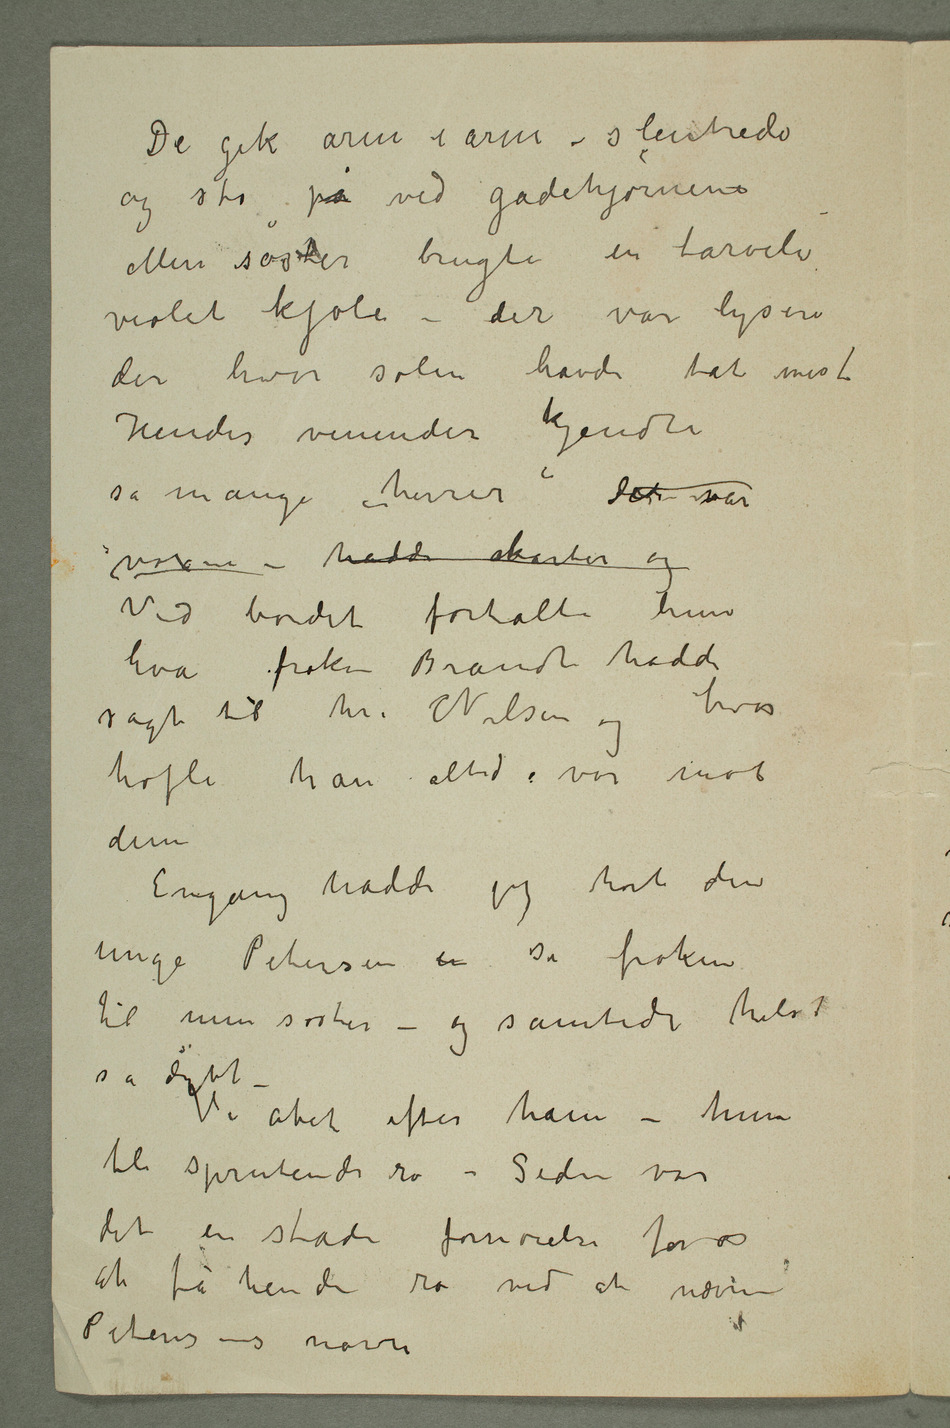 De gik arm i arm – slentrede
og sto på ved gadehjørnene
Min søster brugte en tarveli
violet kjole – der var lysere
der hvor solen havde tat mest
Hendes veninder kjendte
så mange „herrer“ det var
voxne – hadde skarter og
Ved bordet fortalte hun
hva frøken Brandt hadde
sagt til hr. Nilsen og hvor
høfli han altid var mot
dem
Engang hadde jeg hørt den
unge Petersen en sa frøken
til min søster – og samtidi hilst
så dybt –
Vi abet efter ham – hun
ble sprutende rø – Siden var
det en stadi fornøielse for os
at få hende rø ved at nævne
Petersens navn